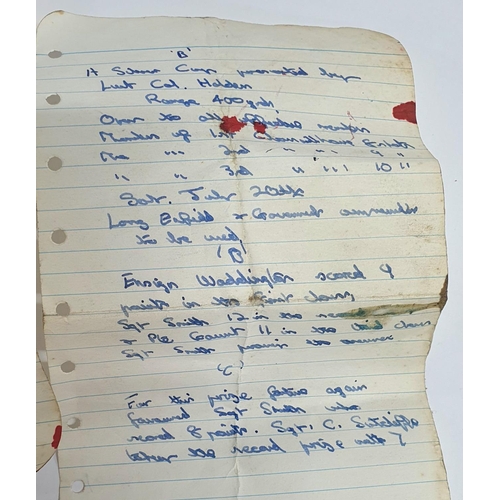 'B'
A Silver Cup presented by
Lieut Col. Holden
Range 400 yds
Open to all
Number of 1st
" " 3rd " " " 10 "
Sat. July 20th
Long Enfield & Government ammunition
to be used
'B'
Ensign Waddington scored 9
points in the first class
Sgt Smith 12 in the
& Pte Gaunt 11 in the 3rd class
Sgt Smith the
'C'
For this prize fortune again
favoured Sgt Smith who
scored 8 points. Sgt. C. Sutcliffe
taken the second prize with 7